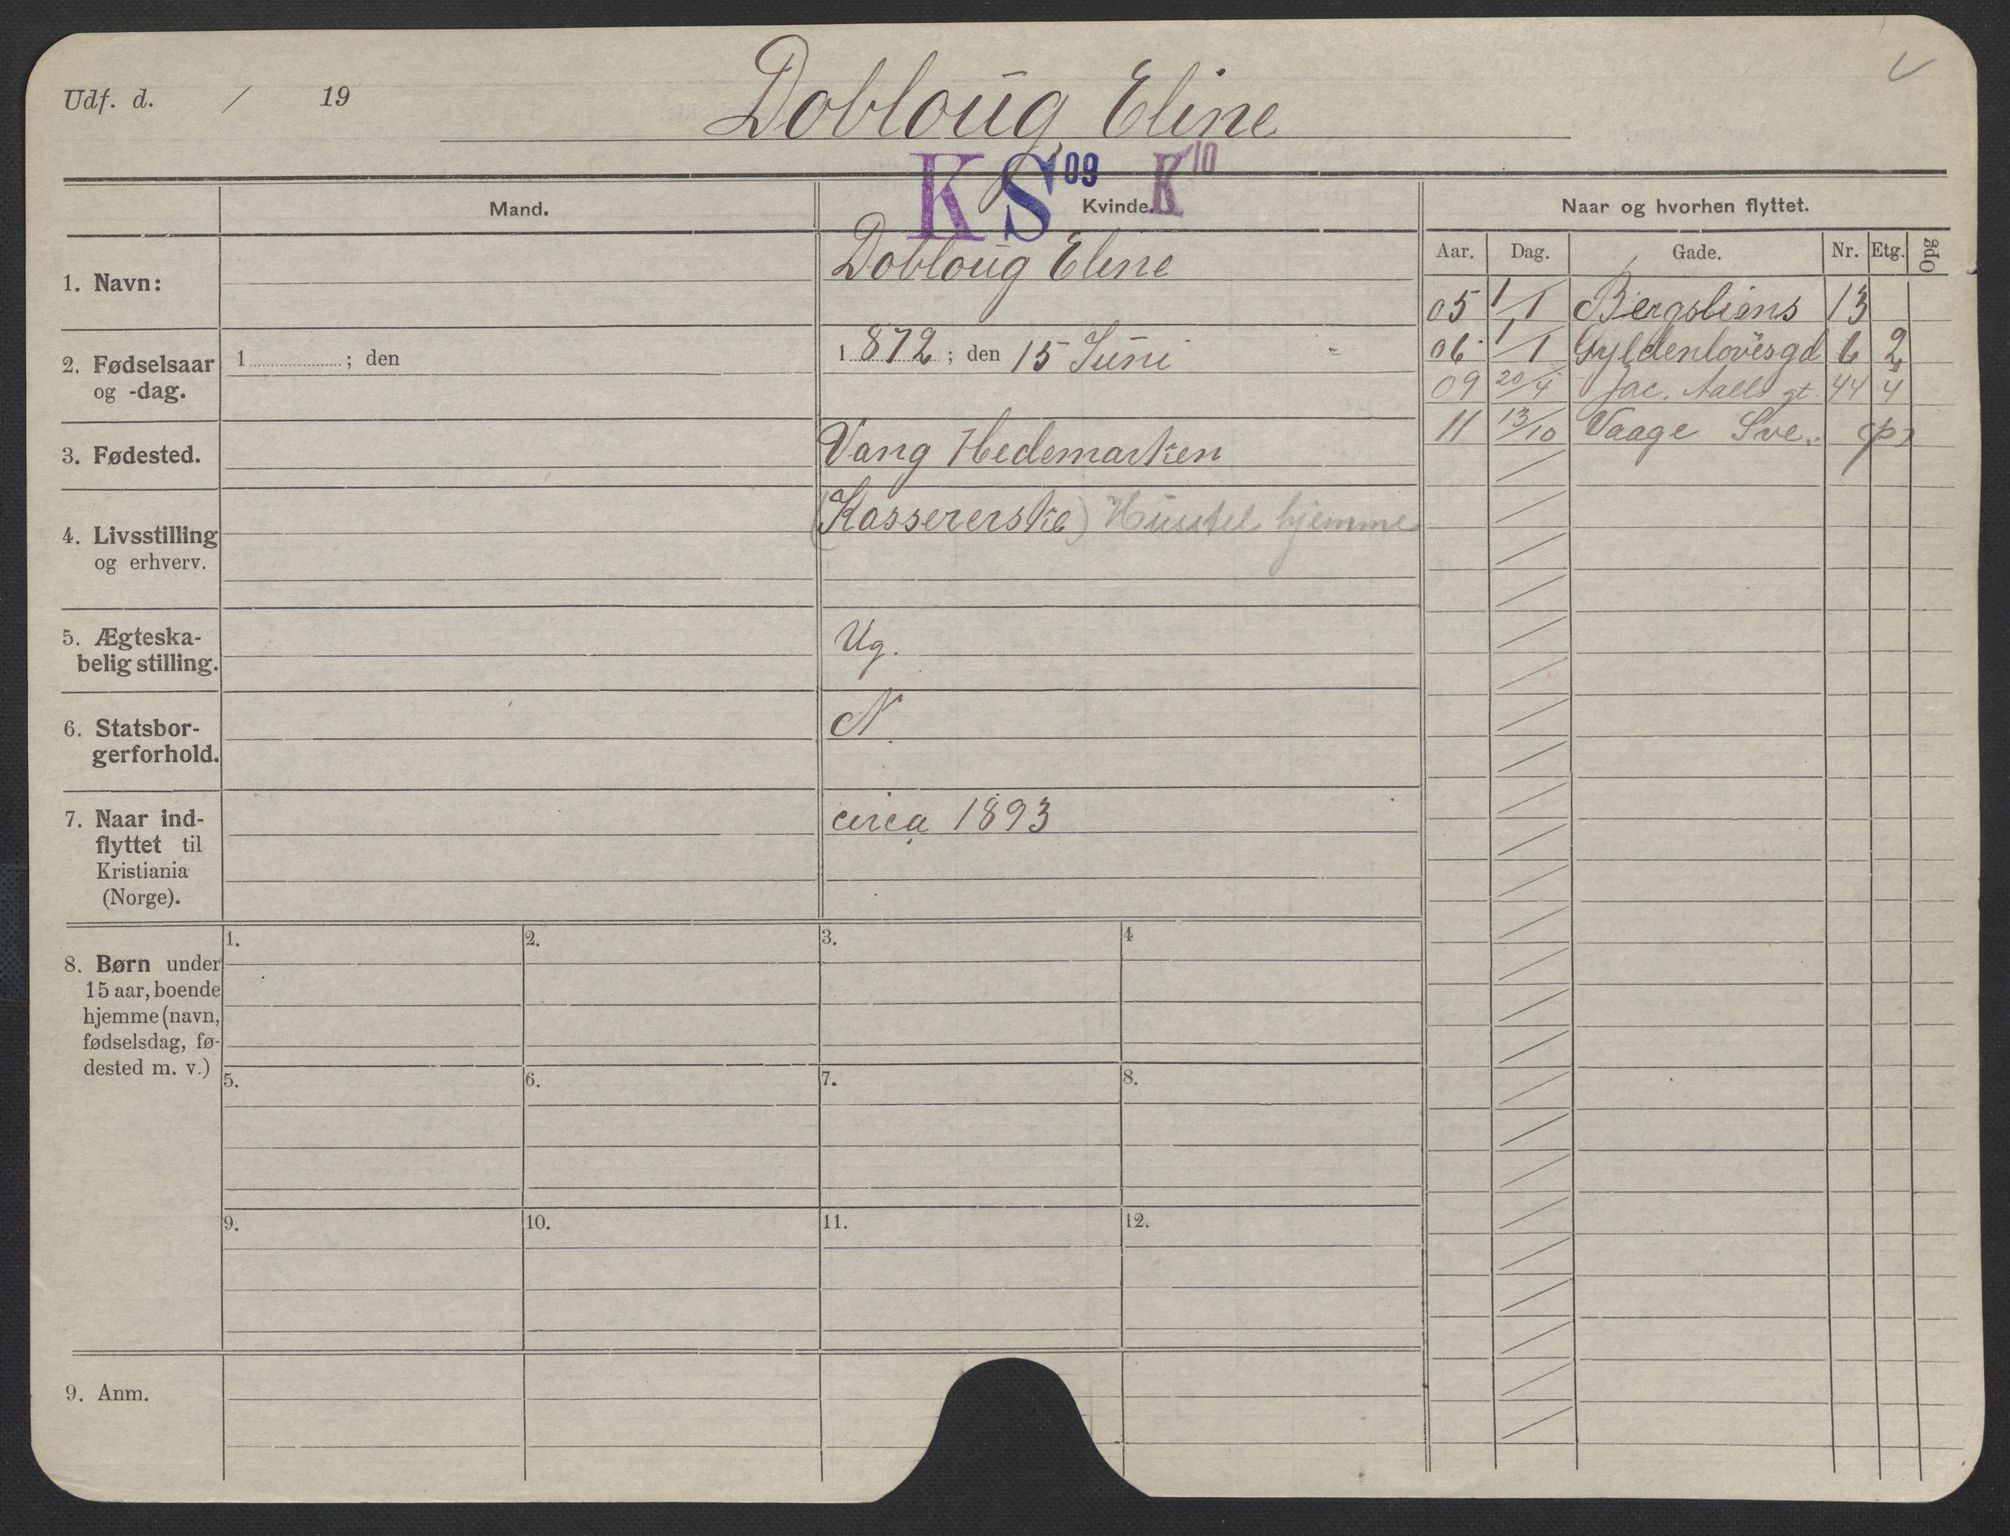 Udf. d. / 19
Dobloug Eline
K S 09 K 10
Mand.
Kvinde.
Naar og hvorhen flyttet.
Aar. Dag. Gade. Nr. Etg. Opg
1. Navn:
Dobloug Eline
05 1/1 Bergsliens 13
06 1/1 Gyldenløvesgd 6 2
09 20/4 Jac. Aalls gt. 44 4
11 13/10 Vaage Sve. (p)
2. Fødselsaar
og -dag.
1 ; den
1 872 ; den 15 Juni
3. Fødested.
Vang Hedemarken
4. Livsstilling
og erhverv.
(Kassererske) Husstel hjemme
5. Ægteska-
belig stilling.
Ug.
6. Statsbor-
gerforhold.
N
7. Naar ind-
flyttet til
Kristiania
(Norge).
circa 1893
8. Børn under
15 aar, boende
hjemme (navn,
fødselsdag, fø-
dested m. v.)
1. 2. 3. 4
5. 6. 7. 8.
9. 10. 11. 12.
9. Anm.